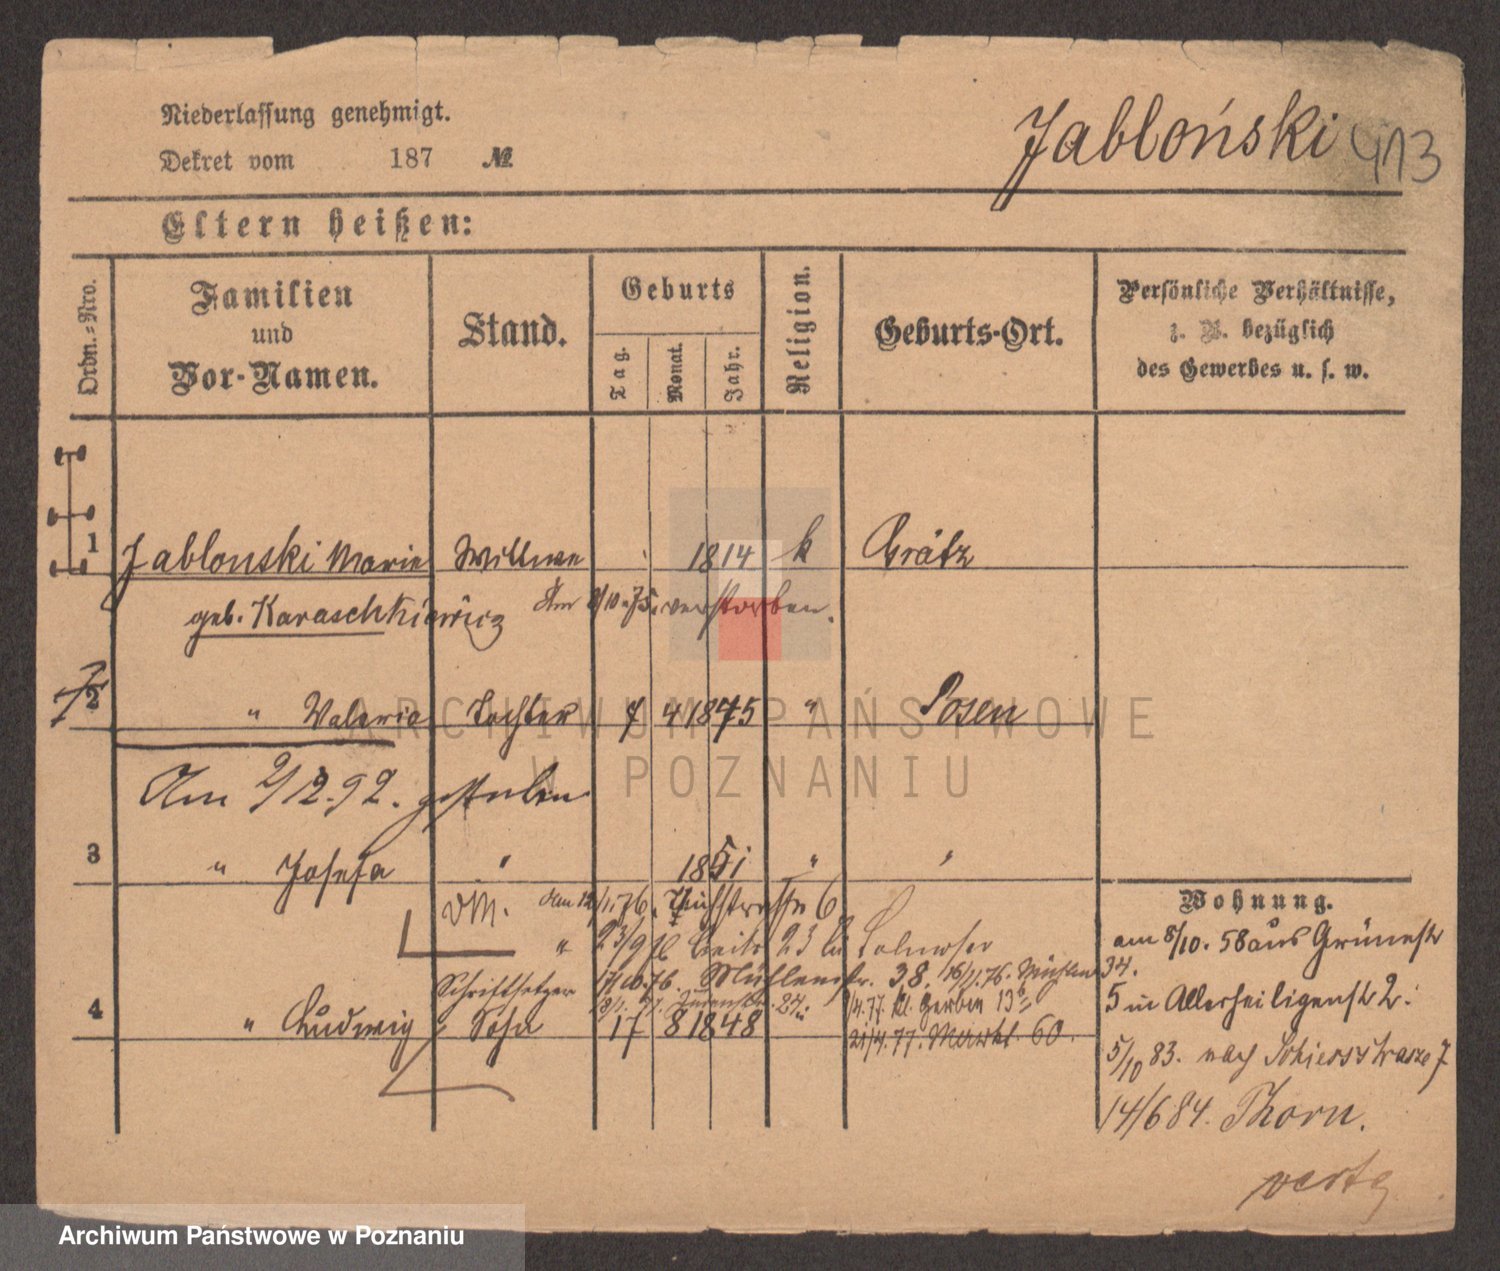 Niederlassung genehmigt.
Dekret vom 187 №
Jabloński 413
Eltern heißen:
Ordn.-Nro.
Familien und Vor-Namen.
Stand.
Geburts
Tag.
Monat.
Jahr.
Religion.
Geburts-Ort.
Persönliche Verhältnisse,
z. B. bezüglich
des Gewerbes u. s. w.
1 Jablonski Marie Wittwe 1814 k Grätz
geb. Karaschkiewicz Am 8/10.75. verstorben.
2 " Valeria Tochter 4 1845 " Posen
Am 2/12.92. gestorben
3 " Josefa " 1851 " "
Am 12/1.76.
" 23/9 76 23
Schriftsetzer 17/10.76. Mühlenstr. 38. 16/11.76. Mühlen 34.
4 " Ludwig Sohn 17 8 1848
1/4.77. kl. Gerber 13b
21/4.77. Markt 60.
Wohnung.
am 8/10. 58 aus Grünestr
5 in Allerheiligenstr 2.
5/10 83. nach 7
14/6 84. Thorn.
verte
ARCHIWUM PAŃSTWOWE
W POZNANIU
Archiwum Państwowe w Poznaniu